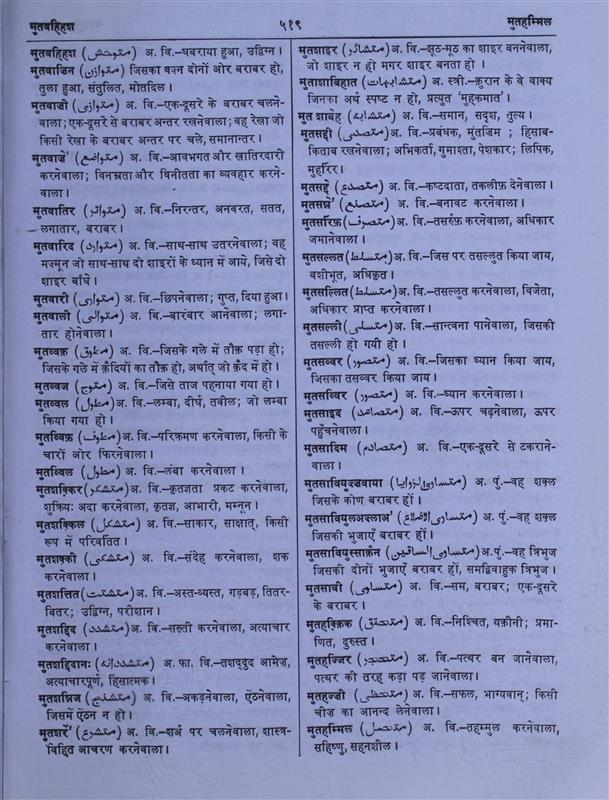 मुतवह्हिश
५१९
मुतहम्मिल
मुतवह्हिश (متوحش) अ. वि.–घबराया हुआ, उद्विग्न ।
मुतवाज़िन (متوازن) जिसका वज़्न दोनों ओर बराबर हो,
तुला हुआ, संतुलित, मोतदिल ।
मुतवाज़ी (متوازی) अ. वि.–एक-दूसरे के बराबर चलने-
वाला; एक-दूसरे से बराबर अन्तर रखनेवाला; वह रेखा जो
किसी रेखा के बराबर अन्तर पर चले, समानान्तर ।
मुतवाज़े' (متواضع) अ. वि.–आवभगत और खातिरदारी
करनेवाला; विनम्रता और विनीतता का व्यवहार करने-
वाला ।
मुतवातिर (متواتر) अ. वि.–निरन्तर, अनवरत, सतत,
लगातार, बराबर ।
मुतवारिद (متوارد) अ. वि.–साथ-साथ उतरनेवाला; वह
मज़्मून जो साथ-साथ दो शाइरों के ध्यान में आये, जिसे दो
शाइर बाँधे ।
मुतवारी (متواری) अ. वि.–छिपनेवाला; गुप्त, दिया हुआ ।
मुतवाली (متوالی) अ. वि.–बारंबार आनेवाला; लगा-
तार होनेवाला ।
मुतव्वक़ (مطوق) अ. वि.–जिसके गले में तौक़ पड़ा हो;
जिसके गले में क़ैदियों का तौक़ हो, अर्थात् जो क़ैद में हो ।
मुतव्वज (متوج) अ. वि.–जिसे ताज पहनाया गया हो ।
मुतव्वल (مطول) अ. वि.–लम्बा, दीर्घ, तवील; जो लम्बा
किया गया हो ।
मुतव्विफ़ (مطوف) अ. वि.–परिक्रमण करनेवाला, किसी के
चारों ओर फिरनेवाला ।
मुतव्विल (مطول) अ. वि.–लंबा करनेवाला ।
मुतशक्किर (متشکر) अ. वि.–कृतज्ञता प्रकट करनेवाला,
शुक्रियः अदा करनेवाला, कृतज्ञ, आभारी, मम्नून ।
मुतशक्किल (متشکل) अ. वि.–साकार, साक्षात्, किसी
रूप में परिवर्तित ।
मुतशक्की (متشکی) अ. वि.–संदेह करनेवाला, शक
करनेवाला ।
मुतशत्तित (متشتت) अ. वि.–अस्त-व्यस्त, गड़बड़, तितर-
बितर; उद्विग्न, परीशान ।
मुतशद्दिद (متشدد) अ. वि.–सख्ती करनेवाला, अत्याचार
करनेवाला ।
मुतशद्दिदानः (متشددانہ) अ. फा. वि.–तशद्दुद आमेज़,
अत्याचारपूर्ण, हिंसात्मक ।
मुतशन्निज (متشنج) अ. वि.–अकड़नेवाला, ऐंठनेवाला,
जिसमें ऐंठन न हो ।
मुतशर्रे' (متشرع) अ. वि.–शर्अ पर चलनेवाला, शास्त्र-
विहित आचरण करनेवाला ।
मुतशाइर (متشاعر) अ. वि.–झूठ-मूठ का शाइर बननेवाला,
जो शाइर न हो मगर शाइर बनता हो ।
मुताशाबिहात (متشابہات) अ. स्त्री.–क़ुरान के वे वाक्य
जिनका अर्थ स्पष्ट न हो, प्रत्युत 'मुहकमात' ।
मुत शाबेह (متشابہ) अ. वि.–समान, सदृश, तुल्य ।
मुतसद्दी (متصدی) अ. वि.–प्रबंधक, मुंतज़िम ; हिसाब-
किताब रखनेवाला; अभिकर्ता, गुमाश्ता, पेशकार; लिपिक,
मुहर्रिर ।
मुतसद्दे (متصدع) अ. वि.–कष्टदाता, तकलीफ़ देनेवाला ।
मुतसन्ने' (متصنع) अ. वि.–बनावट करनेवाला ।
मुतसर्रिफ़ (متصرف) अ. वि.–तसर्रुफ़ करनेवाला, अधिकार
जमानेवाला ।
मुतसल्लत (متسلط) अ. वि.–जिस पर तसल्लुत किया जाय,
वशीभूत, अधिकृत ।
मुतसल्लित (متسلط) अ. वि.–तसल्लुत करनेवाला, विजेता,
अधिकार प्राप्त करनेवाला ।
मुतसल्ली (متسلی) अ. वि.–सान्त्वना पानेवाला, जिसकी
तसल्ली हो गयी हो ।
मुतसव्वर (متصور) अ. वि.–जिसका ध्यान किया जाय,
जिसका तसव्वर किया जाय ।
मुतसव्विर (متصور) अ. वि.–ध्यान करनेवाला ।
मुतसाइद (متصاعد) अ. वि.–ऊपर चढ़नेवाला, ऊपर
पहुँचनेवाला ।
मुतसादिम (متصادم) अ. वि.–एक-दूसरे से टकराने-
वाला ।
मुतसावियुज़्ज़वाया (متساوی الزوایا) अ. पुं.–वह शक्ल
जिसके कोण बराबर हों ।
मुतसावियुलअज़्लाअ' (متساوی الاضلاع) अ. पुं.–वह शक्ल
जिसकी भुजाएँ बराबर हों ।
मुतसावियुस्साक़ैन (متساوی الساقین) अ. पुं.–वह त्रिभुज
जिसकी दोनों भुजाएँ बराबर हों, समद्विबाहुक त्रिभुज ।
मुतसावी (متساوی) अ. वि.–सम, बराबर; एक-दूसरे
के बराबर ।
मुतहक़्क़िक़ (متحقق) अ. वि.–निश्चित, यक़ीनी; प्रमा-
णित, दुरुस्त ।
मुतहज्जिर (متحجر) अ. वि.–पत्थर बन जानेवाला,
पत्थर की तरह कड़ा पड़ जानेवाला ।
मुतहज़्ज़ी (متحظی) अ. वि.–सफल, भाग्यवान्; किसी
चीज़ का आनन्द लेनेवाला ।
मुतहम्मिल (متحمل) अ. वि.–तहम्मुल करनेवाला,
सहिष्णु, सहनशील ।